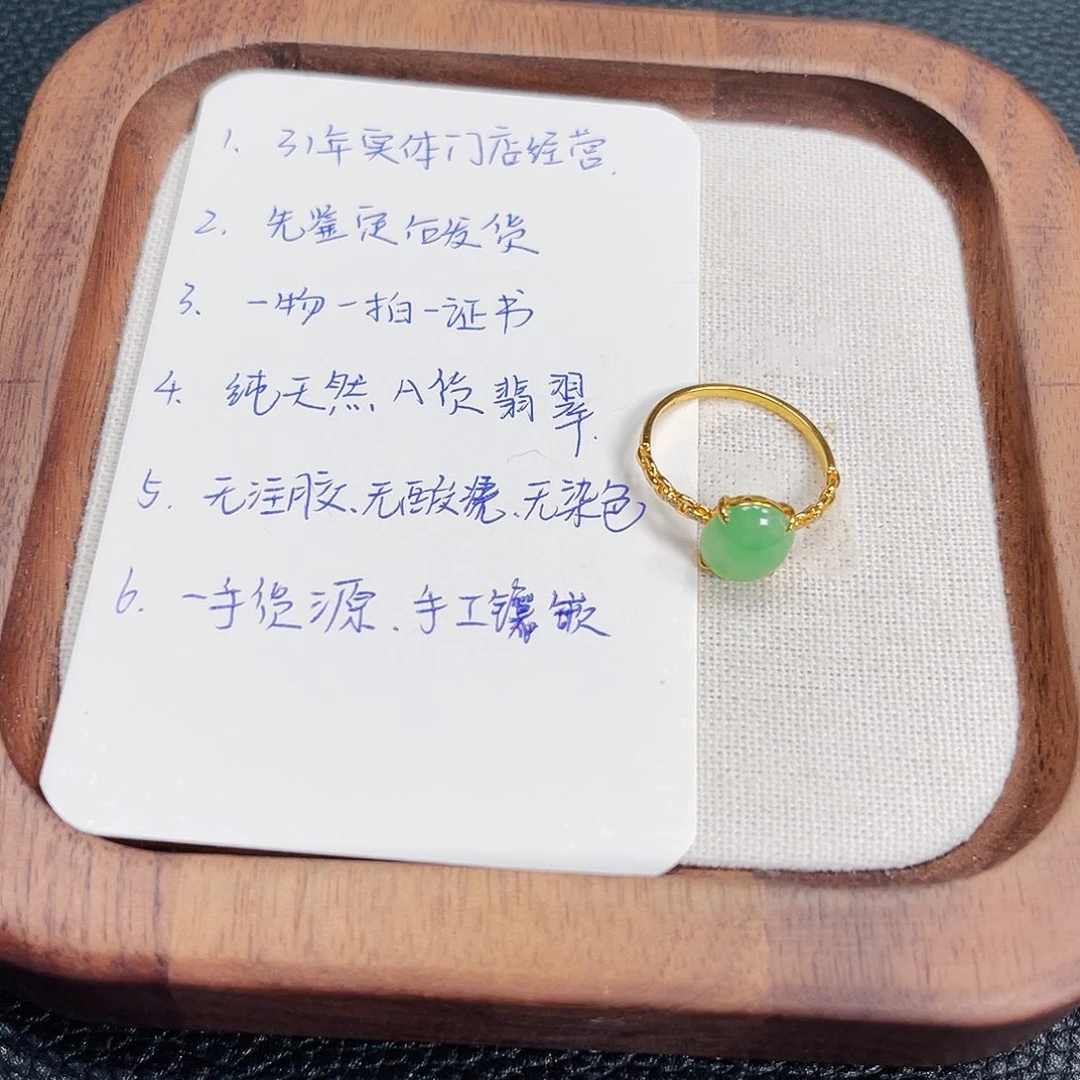 1. 31年实体门店经营.
2. 先鉴定后发货
3. 一物一拍一证书
4. 纯天然A货翡翠.
5. 无注胶、无酸烧、无染色
6. 一手货源、手工镶嵌